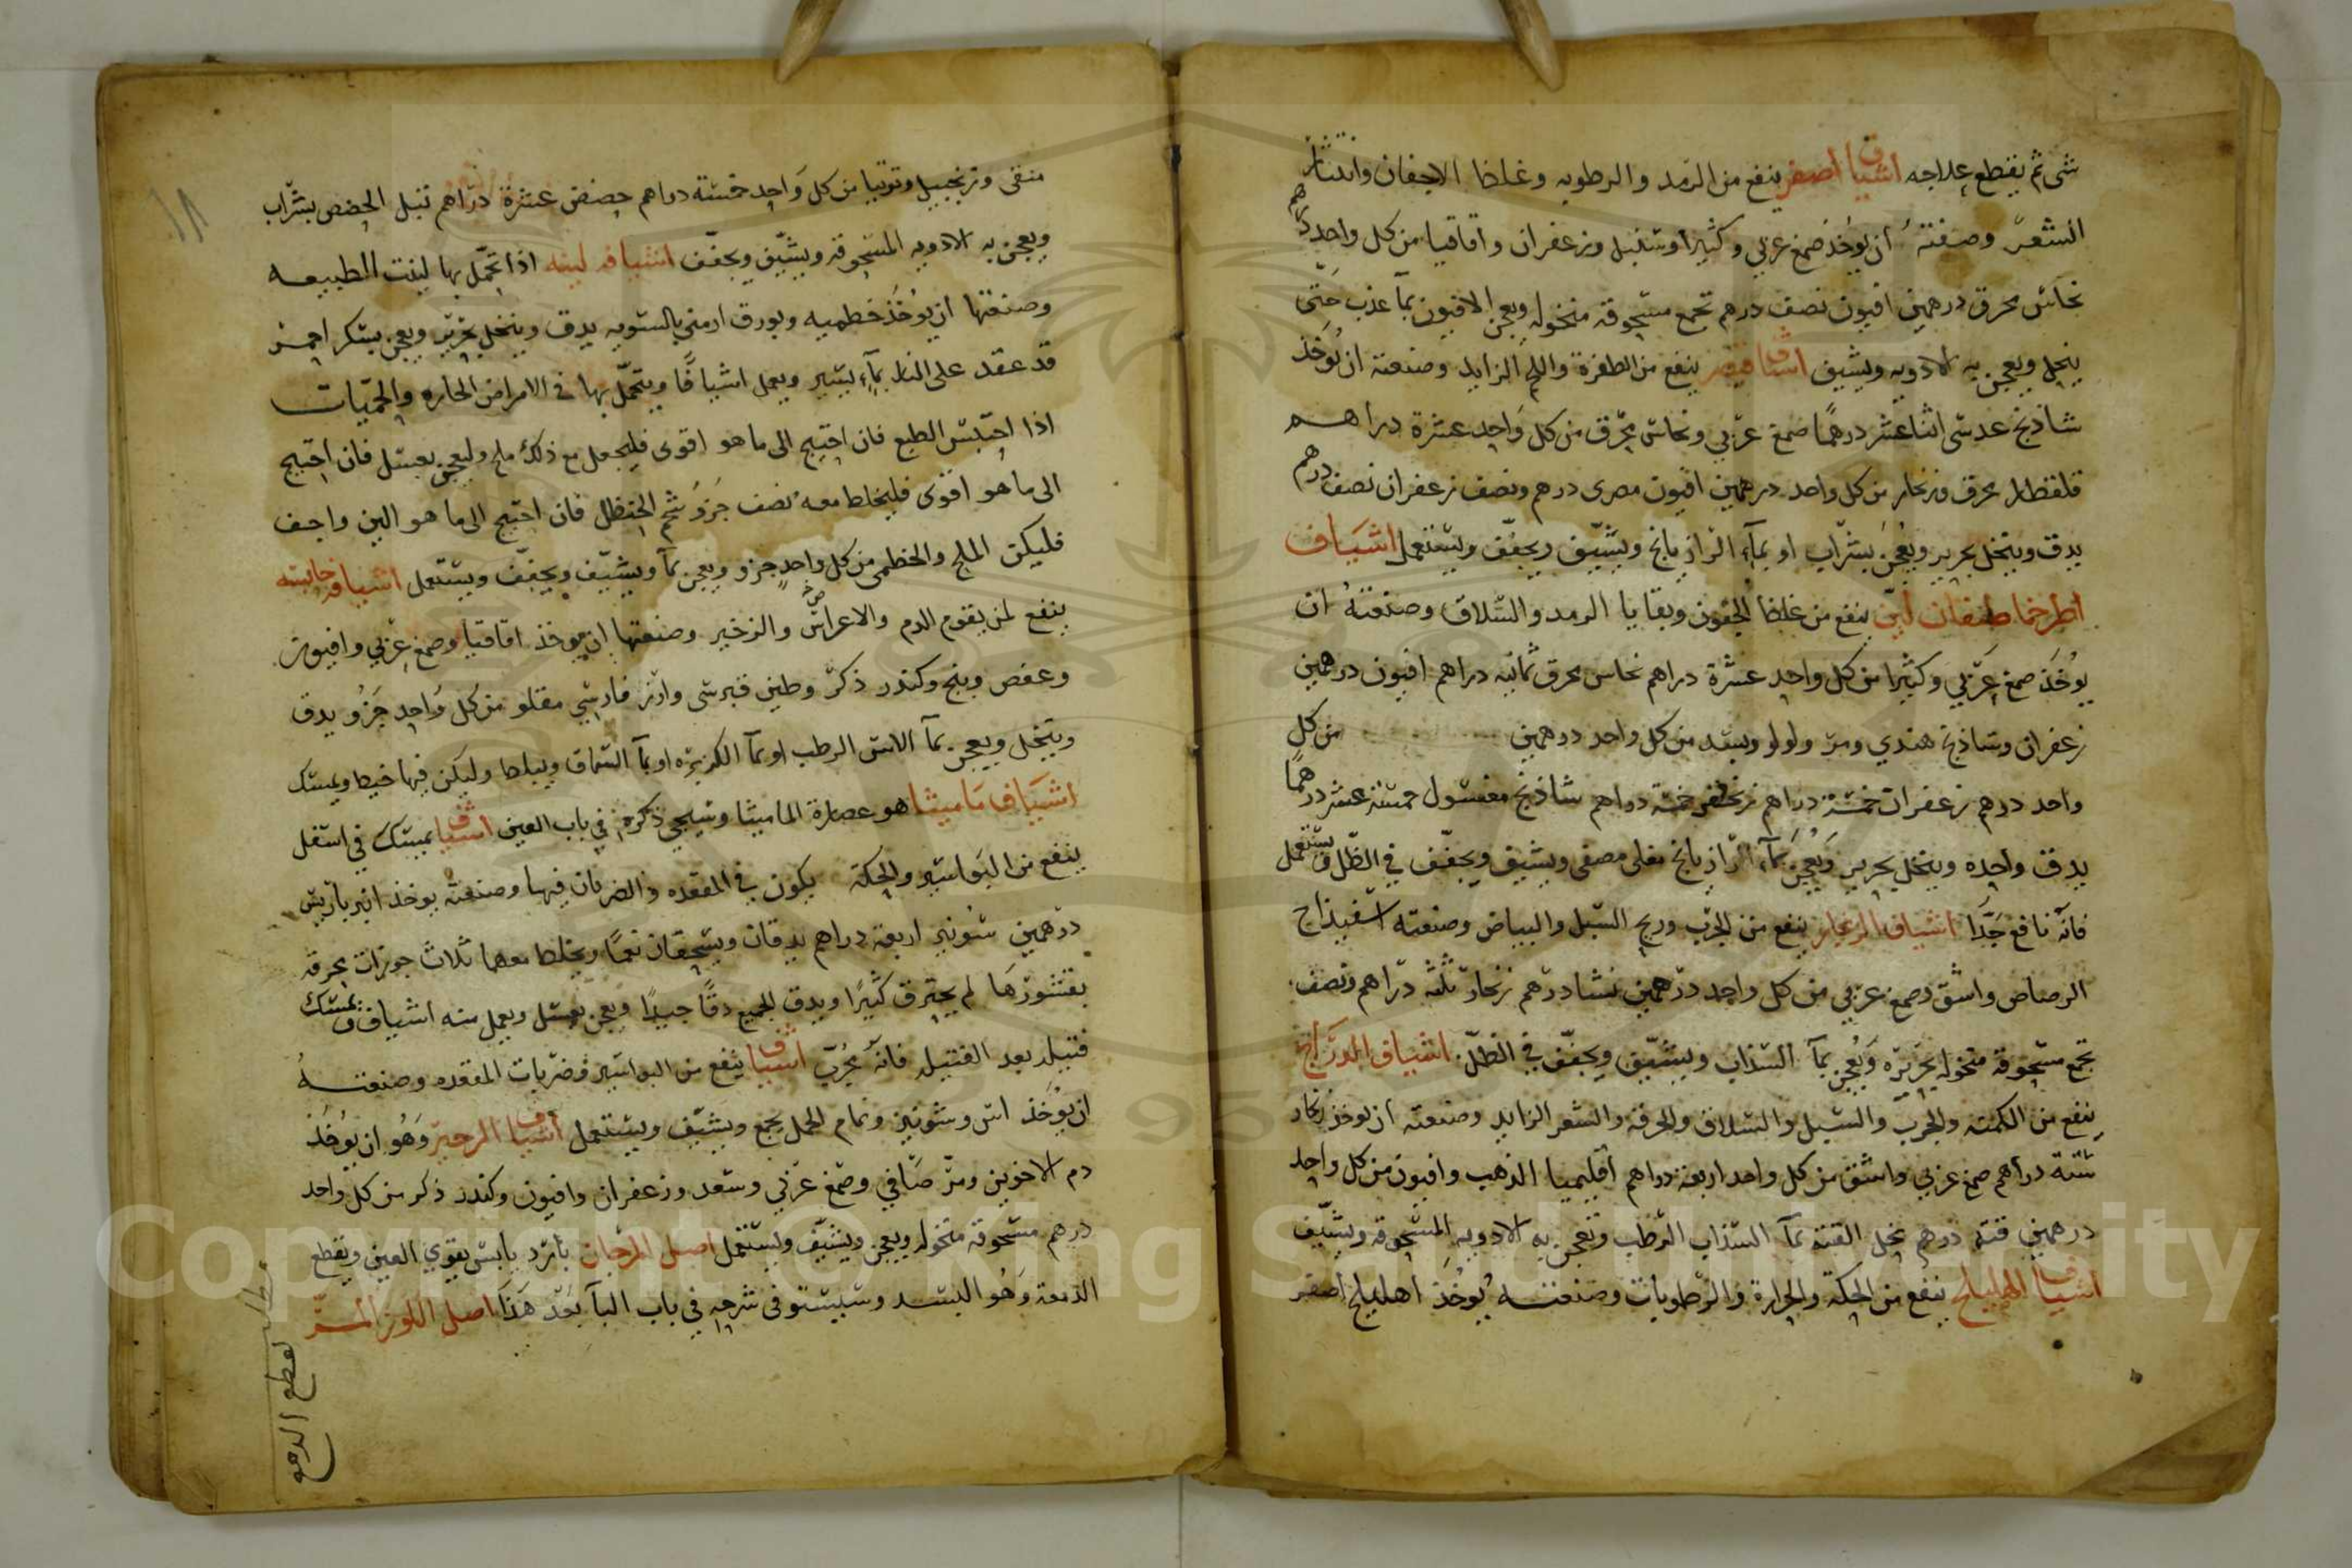 شى ثم يقطع علاجه اشياف اصفر ينفع من الرمد والرطوبه وغلظ الاجفان وانتثار
الشعر وصفته ان يوخذ صمغ عربي وكثيرا وسنبل وزعفران واقاقيا من كل واحد درهم
نحاس محرق درهمين افيون نصف درهم تجمع مسحوقة منخوله ويعجن الافيون بمآ عذب حتى
ينحل ويعجن به الادويه ويشيف اشياف ينفع من الظفرة واللحم الزايد وصنعته ان يوخذ
شاذنج عدسى اثنا عشر درهمًا صمغ عربي ونحاس محرق من كل واحد عشرة دراهم
قلقطار محرق وزنجار من كل واحد درهمين افيون مصرى درهم ونصف زعفران نصف درهم
يدق وينخل بحرير ويعجن بشراب او بمآء الرازيانج ويشيف ويجفف ويستعمل اشياف
اطرخماطيقان لين ينفع من غلظ الجفون وبقايا الرمد والسلاق وصنعته ان
يوخذ صمغ عربي وكثيرا من كل واحد عشرة دراهم نحاس محرق ثمانيه دراهم افيون درهمين
زعفران وشاذنج هندي ومر ولولو وبسد من كل واحد درهمين من كل
واحد درهم زعفران خمسة دراهم زنجفر خمسة دراهم شاذنج مغسول خمسة عشر درهمًا
يدق واحده وينخل بحرير ويعجن بمآء الرازيانج مغلى مصفى ويشيف ويجفف في الظل ويستعمل
فانه نافع جدًا اشياف الزنجار ينفع من الجرب وريح السبل والبياض وصنعته اسفيذاج
الرصاص واشق وصمغ عربي من كل واحد درهمين نشا درهم زنجار ثلثه دراهم ونصف
تجمع مسحوقة منخوله بحريره ويعجن بمآ السذاب ويشيف ويجفف في الظل اشياف الدرانج
ينفع من الكمنه والجرب والسبل والسلاق والحرقه والشعر الزايد وصنعته ان يوخذ زنجار
ستة دراهم صمغ عربي واشق من كل واحد اربعة دراهم اقليميا الذهب وافيون من كل واحد
درهمين قنه درهم تحل القنه بمآ السذاب الرطب وتعجن به الادويه المسحوقة ويشيف
اشياف الهليلج ينفع من الحكة والحرارة والرطوبات وصنعته يوخذ اهليلج اصفر
منقى وزنجبيل وتوتيا من كل واحد خمسة دراهم حضض عشرة دراهم تبل الحضض بشراب
ويعجن به الادويه المسحوقة ويشيف ويجفف اشيافه لينه اذا تحمل بها لينت الطبيعه
وصنعتها ان يوخذ خطميه وبورق ارمني بالسويه يدق وينخل بحرير ويعجن بسكر احمر
قد عقد على النار بمآء يسير ويعمل اشيافًا ويتحمل بها في الامراض الحاره والحميات
اذا احتبس الطبع فان احتيج الى ما هو اقوى فليجعل مع ذلك ملح وليعجن بعسل فان احتيج
الى ما هو اقوى فليخلط معه نصف جزو شحم الحنظل فان احتيج الى ما هو الين واخف
فليكن الملح والخطمى من كل واحد جزو ويعجن بمآ ويشيف ويجفف ويستعمل اشيافه حابسه
ينفع لمن يقوم الدم والاعراس والزخير وصنعتها ان يوخذ اقاقيا وصمغ عربي وافيون
وعفص وبنج وكندر ذكر وطين قبرسى وارز فارسي مقلو من كل واحد جزو يدق
وينخل ويعجن بمآ الاس الرطب او بمآ الكزبره او بمآ السماق ويبلط وليكن فيها خيط ويمسك
اشياف ماميثا هو عصارة الماميثا وسيجي ذكره في باب العين اشياف يمسك في اسفل
ينفع من البواسير والحكة يكون في المقعده والضربان فيها وصنعته يوخذ انبرباريس
درهمين شونيز اربعة دراهم يدقان ويسحقان نعمًا ويخلط معهما ثلاث جوزات محرقه
بقشورها لم يحترق كثيرًا ويدق الجميع دقًا جيدًا ويعجن بعسل ويعمل منه اشياف ويمسك
فتيله بعد الفتيله فانه مجرب اشياف ينفع من البواسير وضربات المقعده وصنعته
ان يوخذ اس وشونيز وتمام الحمل يجمع ويشيف ويستعمل اشياف الزحير وهو ان يوخذ
دم الاخوين ومر صافي وصمغ عربي وسعد وزعفران وافيون وكندر ذكر من كل واحد
درهم مسحوقة منخوله ويعجن ويشيف ويستعمل اصل المرجان بارد يابس يقوي العين ويقطع
الدمعة وهو البسد وسيستوفى شرحه في باب البآ بعد هذا اصل اللوز المر
مطلب لقطع الدمع